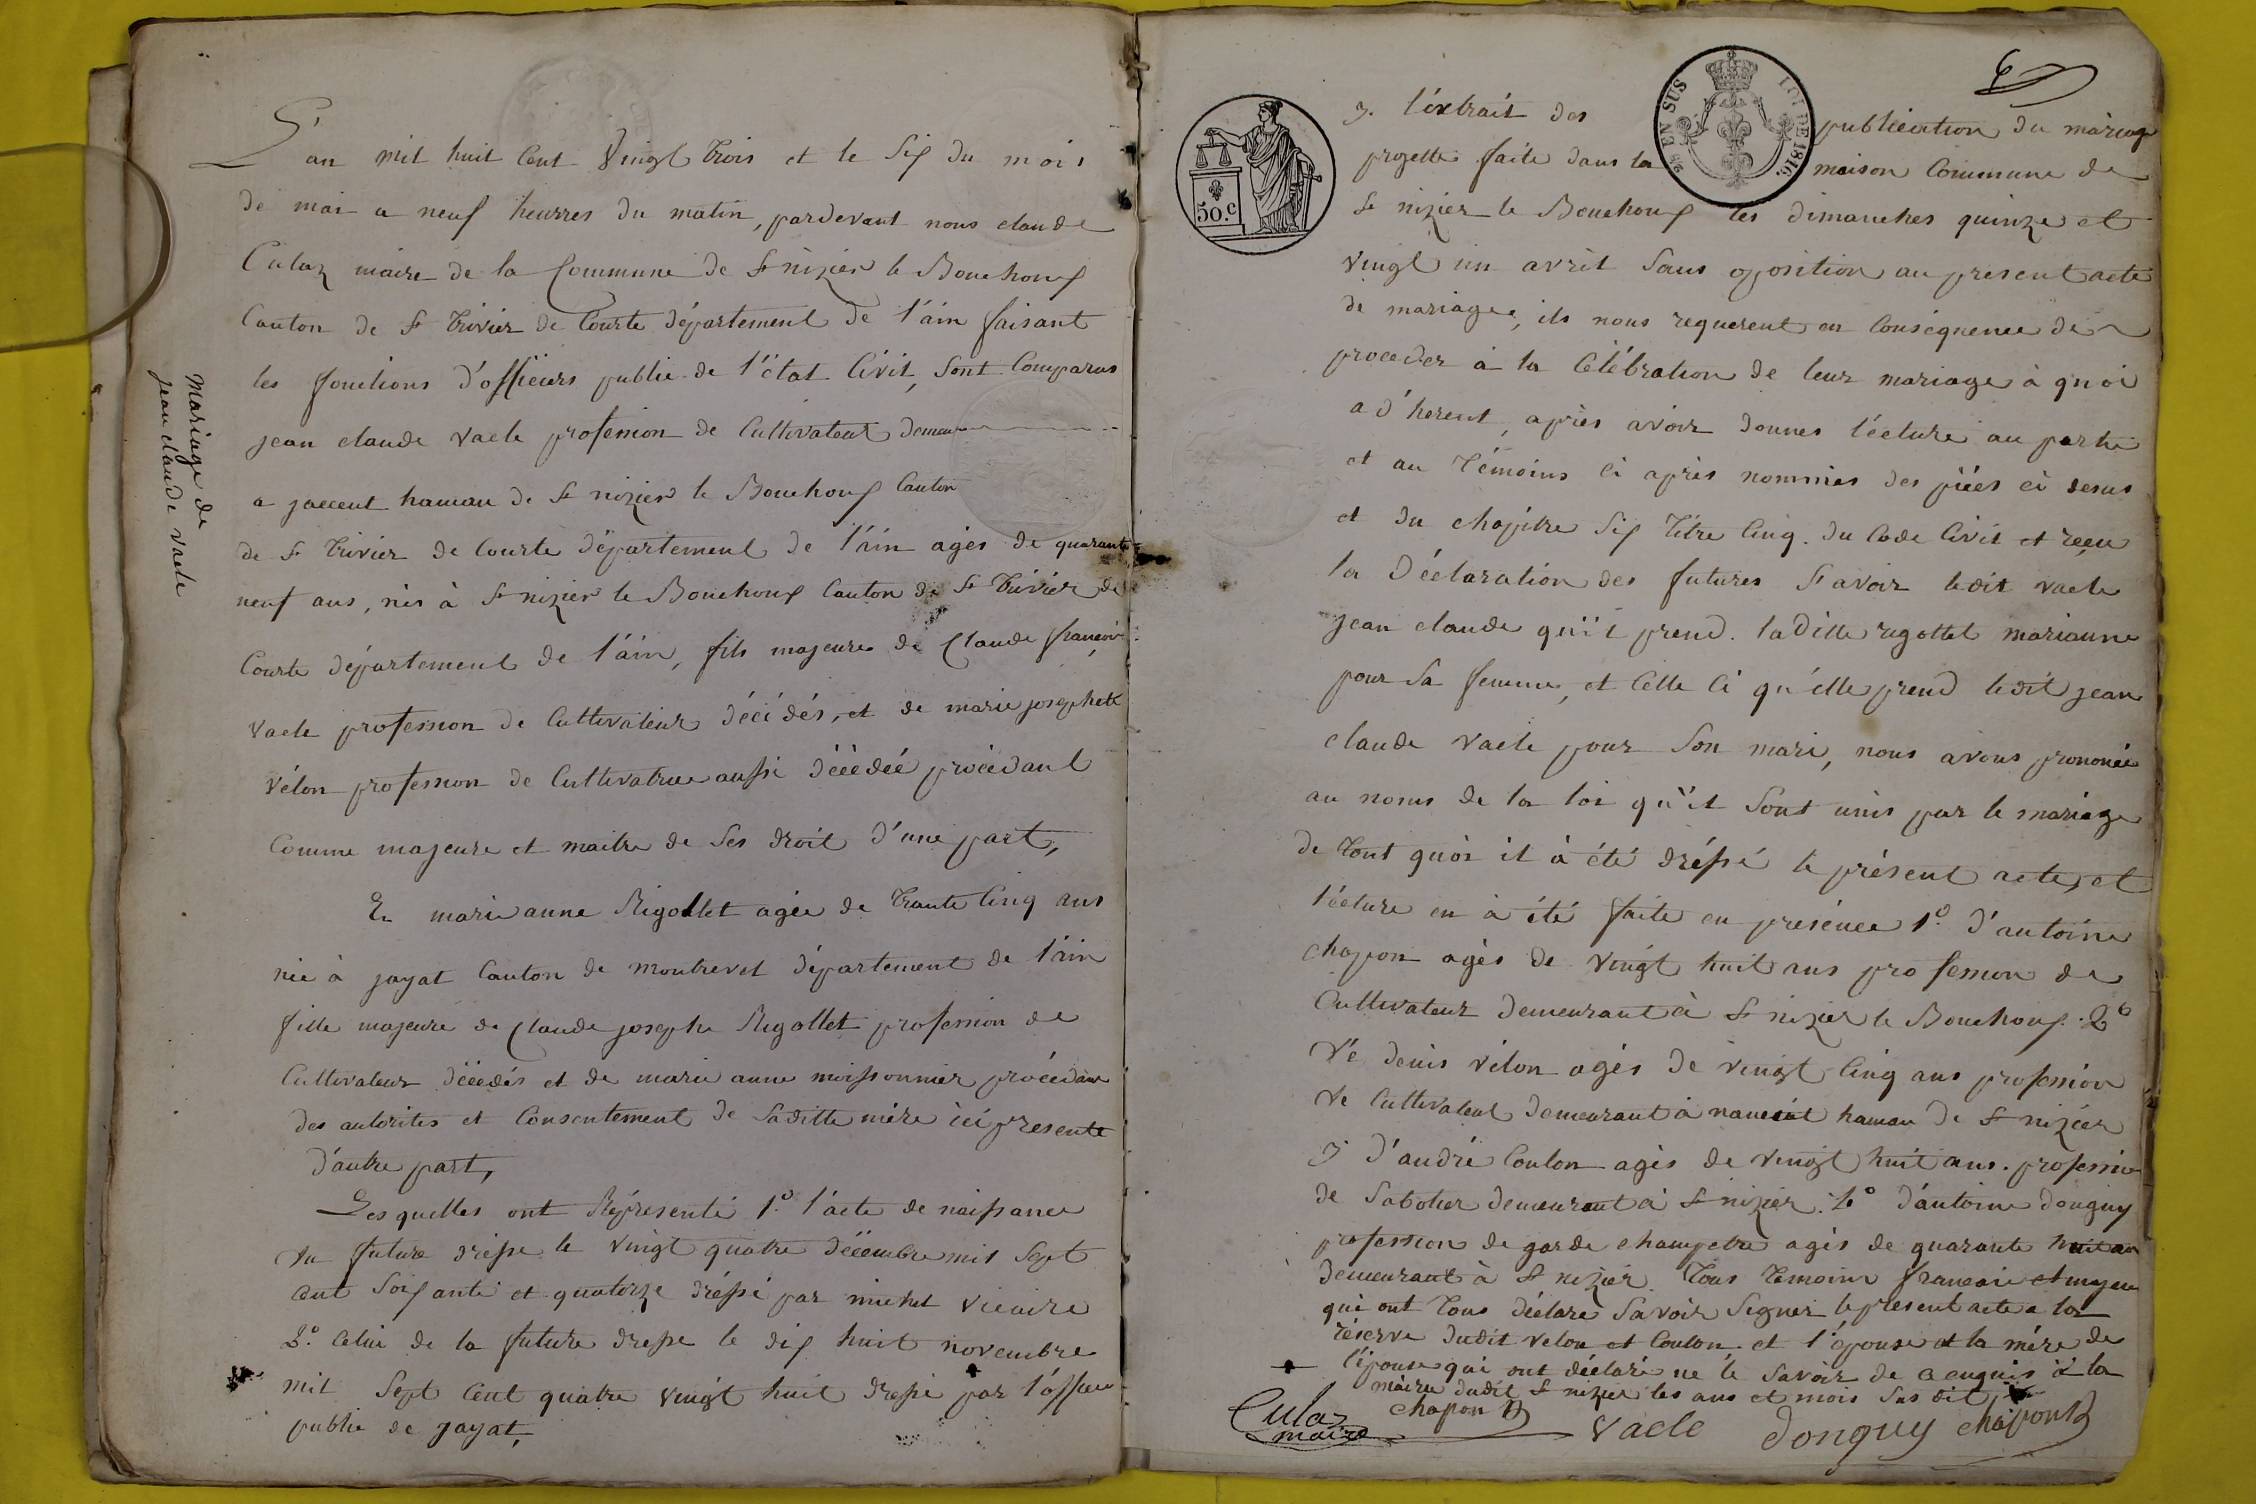 mariage de
jean claude vacle
L'an mil huit Cent Vingt trois et le Six du mois
de mai a neuf heurres du matin, pardevant nous claude
Culaz maire de la Commune de St nizier le Bouchoux
Canton de St trivier de Courte département de l'ain faisant
les fonctions d'officiers public de l'état Civil, Sont Comparus
jean claude vacle profession de Cultivateur demeur
a jaccent hamau de St nizier le Bouchoux Canton
de St trivier de Courte département de l'ain agés de quarante
neuf ans, nés à St nizier le Bouchoux Canton de St trivier de
Courte département de l'ain, fils majeure de Claude françoi
vacle profession de Cultivateur décédés, et de marie josephete
vélon profession de Cultivatrice aussi décédée procédant
Comme majeure et maitre de Ses droit d'une part,
Et marie anne Rigollet agée de trante Cinq ans
née à jayat Canton de montrevel département de l'ain
fille majeure de Claude joseph Rigollet profession de
Cultivateur décédés et de marie anne moissonnier procédant
des autorites et Consentement de Saditte mère ici presente
d'autre part,
Les quelles ont Répresenté 1.º l'acte de naissance
du future drésse le vingt quatre décembre mil Sept
Cent Soixante et quatorze dréssé par michel vicaire
2.º Celui de la future dresse le dix huit novembre
mil Sept Cent quatre vingt huit dressé par l'officier
public de jayat,
EN SUS
LOI DE 1816.
50.C
3. l'extrait des publication du mariage
projette faite dans la maison Commune de
St nizier le Bouchoux les dimanches quinze et
vingt un avril Sans oposition au present acte
de mariage, ils nous requerent en Conséquence de
proceder à la Célébration de leur mariage à quoi
ad'herent, après avoir donnes lécture au partie
et au témoins Ci après nommés des piéés ci desus
et du chapitre Six titre Cinq. du Code Civil et reçu
la Déclaration des futures Savoir ledit vacle
jean claude qu'il prend. laditte rigollet marianne
pour Sa femme, et Celle Ci qu'elle prend ledit jean
claude vacle pour Son mari, nous avons prononcé
au noms de la loi qu'il Sont unis par le mariage
de tout quoi il à été dréssé le présent acte, et
lécture en à été faite en presénce 1.º d'antoine
chapon agés de vingt huit ans profession de
Cultivateur demeurant à St nizier le Bouchoux. 2º
de denis vélon agés de vingt Cinq ans profession
de Cultivateur demeurant à hamau de St nizier
3º d'andré Coulon agés de vingt huit ans. profession
de Sabotier demeurant à St nizier. 4º d'antoine donguy
profession de garde champetre agés de quarante huit an
demeurant à St nizier. tous temoins francais et majeur
qui ont tous déclaré Savoir Signer le present acte a la
réserve dudit velon et Coulon et l'épouse et la mère de
l'épouse qui ont déclaré ne le Savoir de a la
mairie dudit St nizier les ans et mois Sus dit
Culaz
maire
chapon
vacle
donguy
chapon